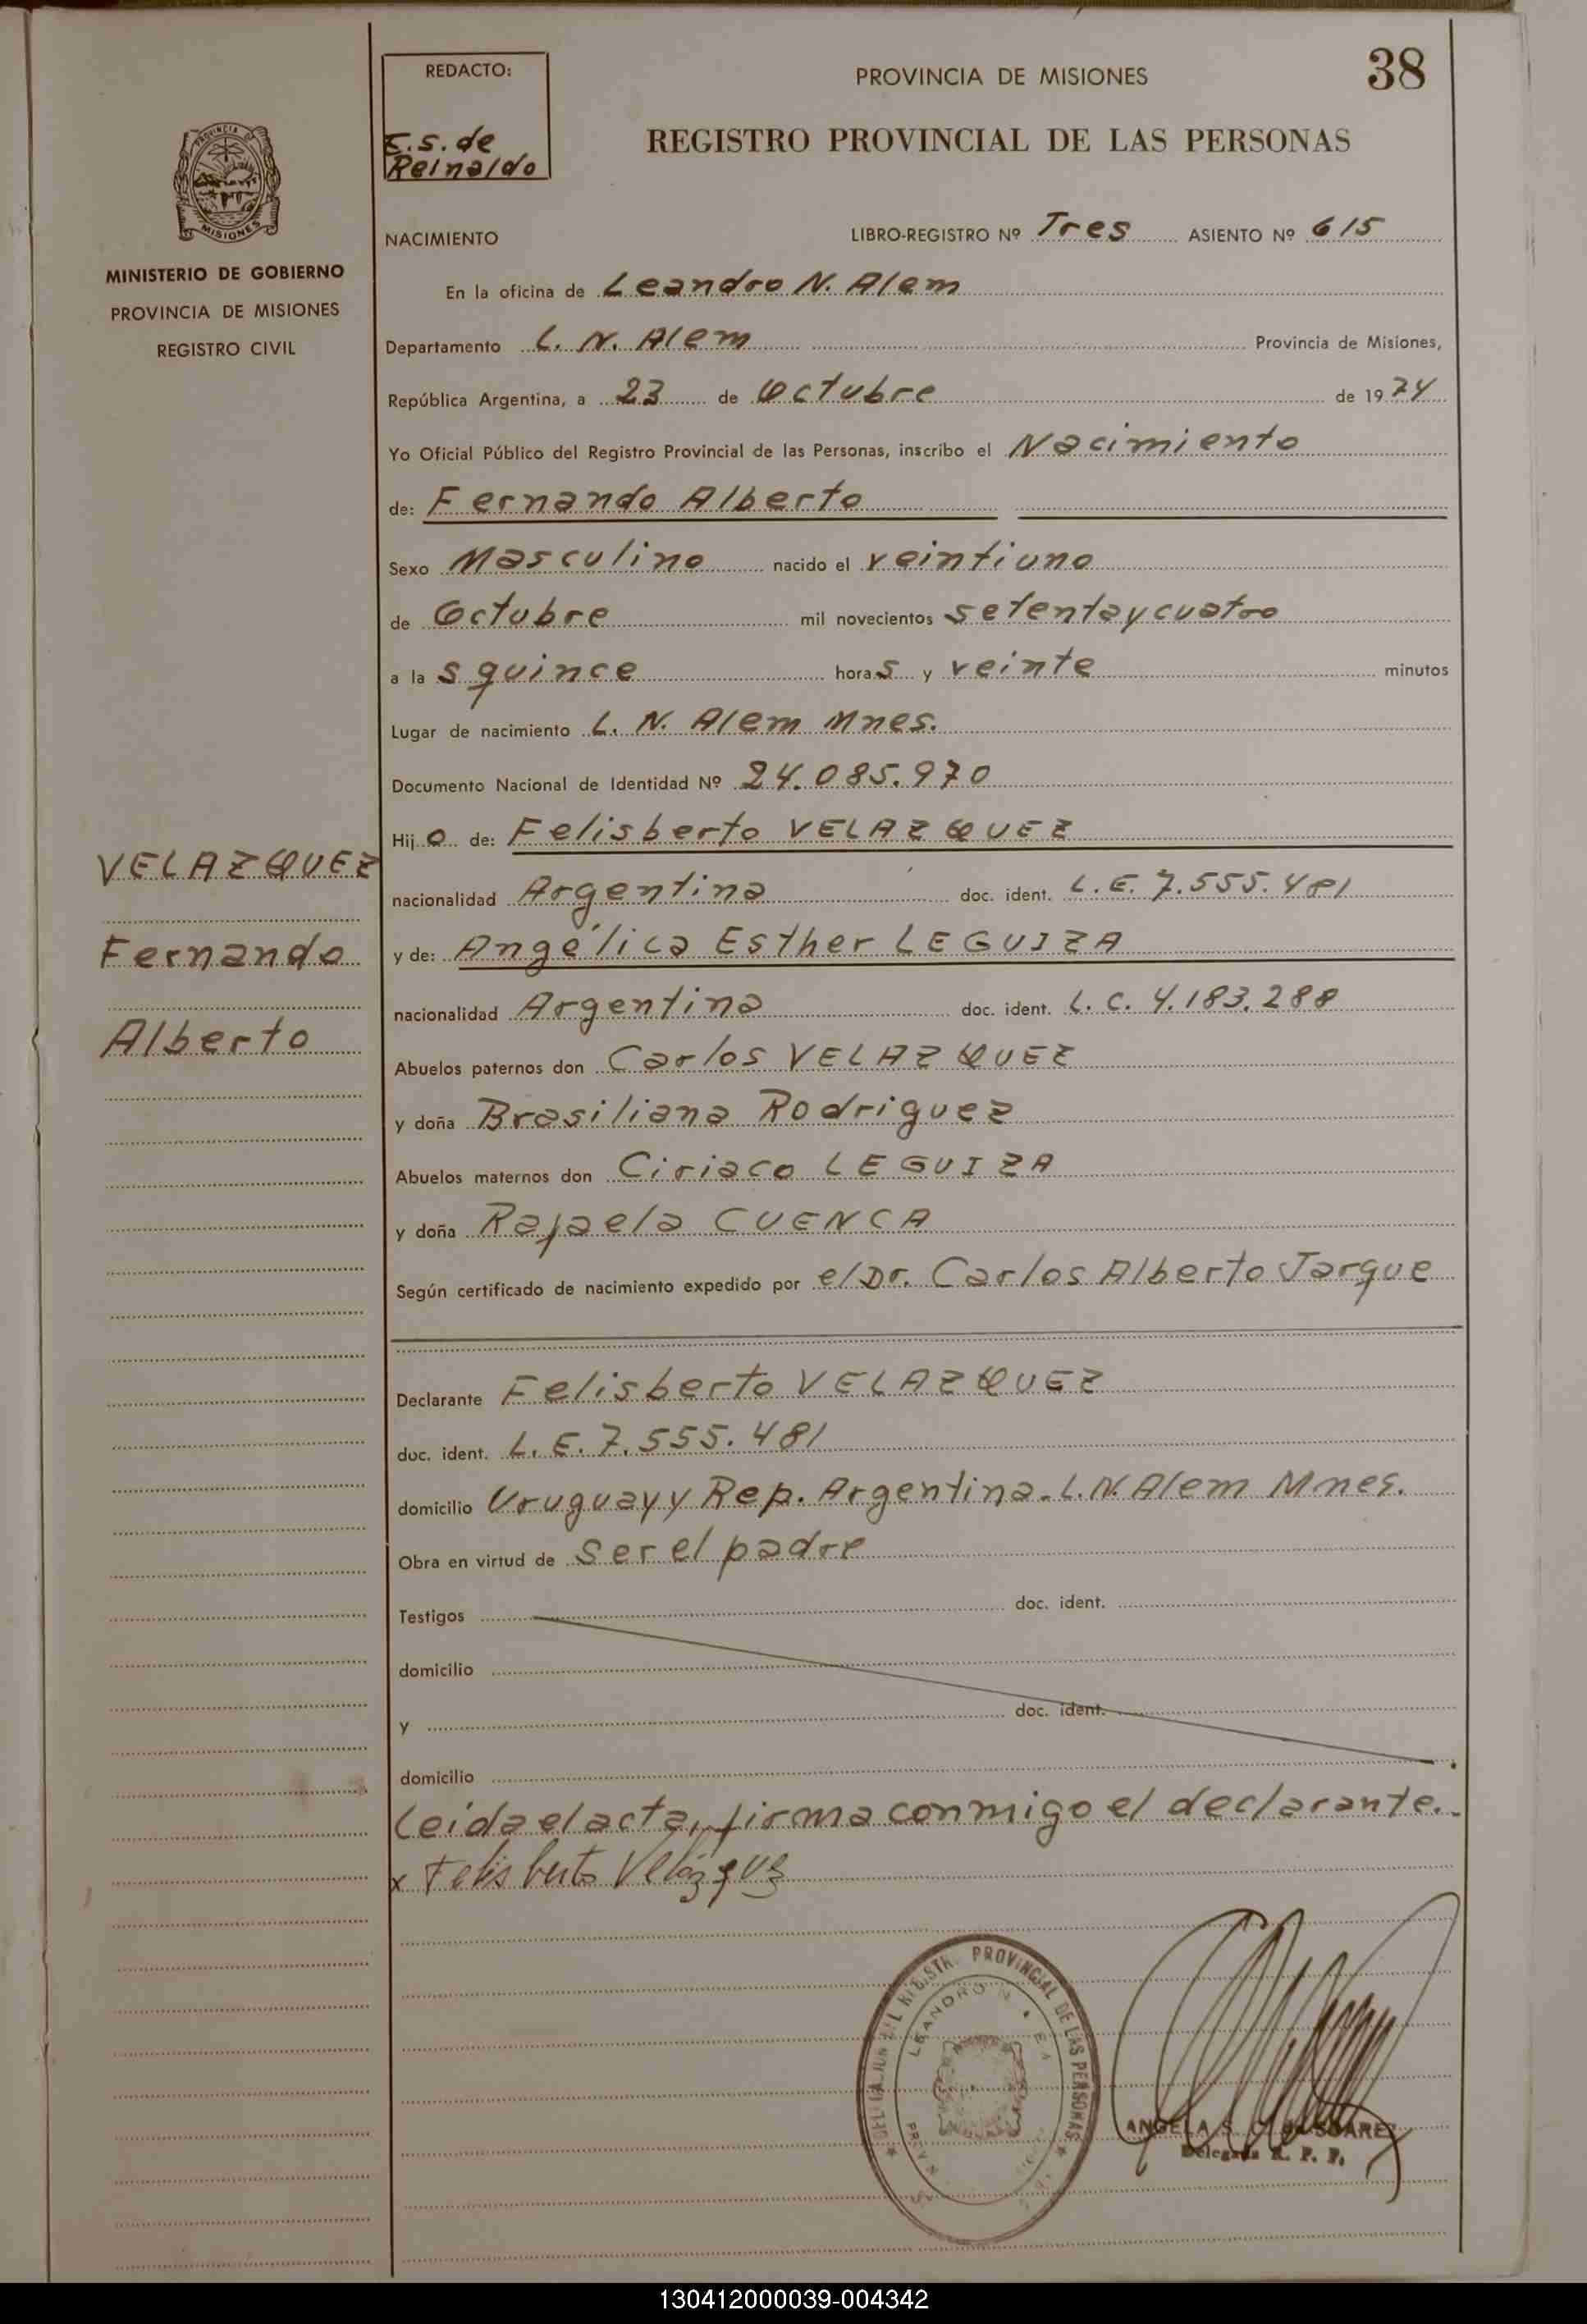 REDACTO:
E.S. de
Reinaldo
PROVINCIA DE MISIONES
38
REGISTRO PROVINCIAL DE LAS PERSONAS
PROVINCIA DE
MISIONES
MINISTERIO DE GOBIERNO
PROVINCIA DE MISIONES
REGISTRO CIVIL
NACIMIENTO LIBRO-REGISTRO Nº Tres ASIENTO Nº 615
En la oficina de Leandro N. Alem
Departamento L. N. Alem Provincia de Misiones,
República Argentina, a 23 de Octubre de 1974
Yo Oficial Público del Registro Provincial de las Personas, inscribo el Nacimiento
de: Fernando Alberto
Sexo Masculino nacido el veintiuno
de Octubre mil novecientos setentaycuatro
a las quince horas y veinte minutos
Lugar de nacimiento L. N. Alem Mnes.
Documento Nacional de Identidad Nº 24.085.970
Hijo de: Felisberto VELAZQUEZ
VELAZQUEZ
Fernando
Alberto
nacionalidad Argentina doc. ident. L.E. 7.555.481
y de: Angélica Esther LEGUIZA
nacionalidad Argentina doc. ident. L.C. 4.183.288
Abuelos paternos don Carlos VELAZQUEZ
y doña Brasiliana Rodriguez
Abuelos maternos don Ciriaco LEGUIZA
y doña Rafaela CUENCA
Según certificado de nacimiento expedido por el Dr. Carlos Alberto Jorque
Declarante Felisberto VELAZQUEZ
doc. ident. L.E. 7.555.481
domicilio Uruguay y Rep. Argentina. L.N. Alem Mnes.
Obra en virtud de ser el padre
Testigos doc. ident.
domicilio
y doc. ident.
domicilio
Leida el acta, firma conmigo el declarante.
x Felisberto Velázquz
PROVINCIAL DE LAS PERSONAS
LEANDRO N.
ANGELA S. de SUAREZ
Delegada R. P. P.
130412000039-004342